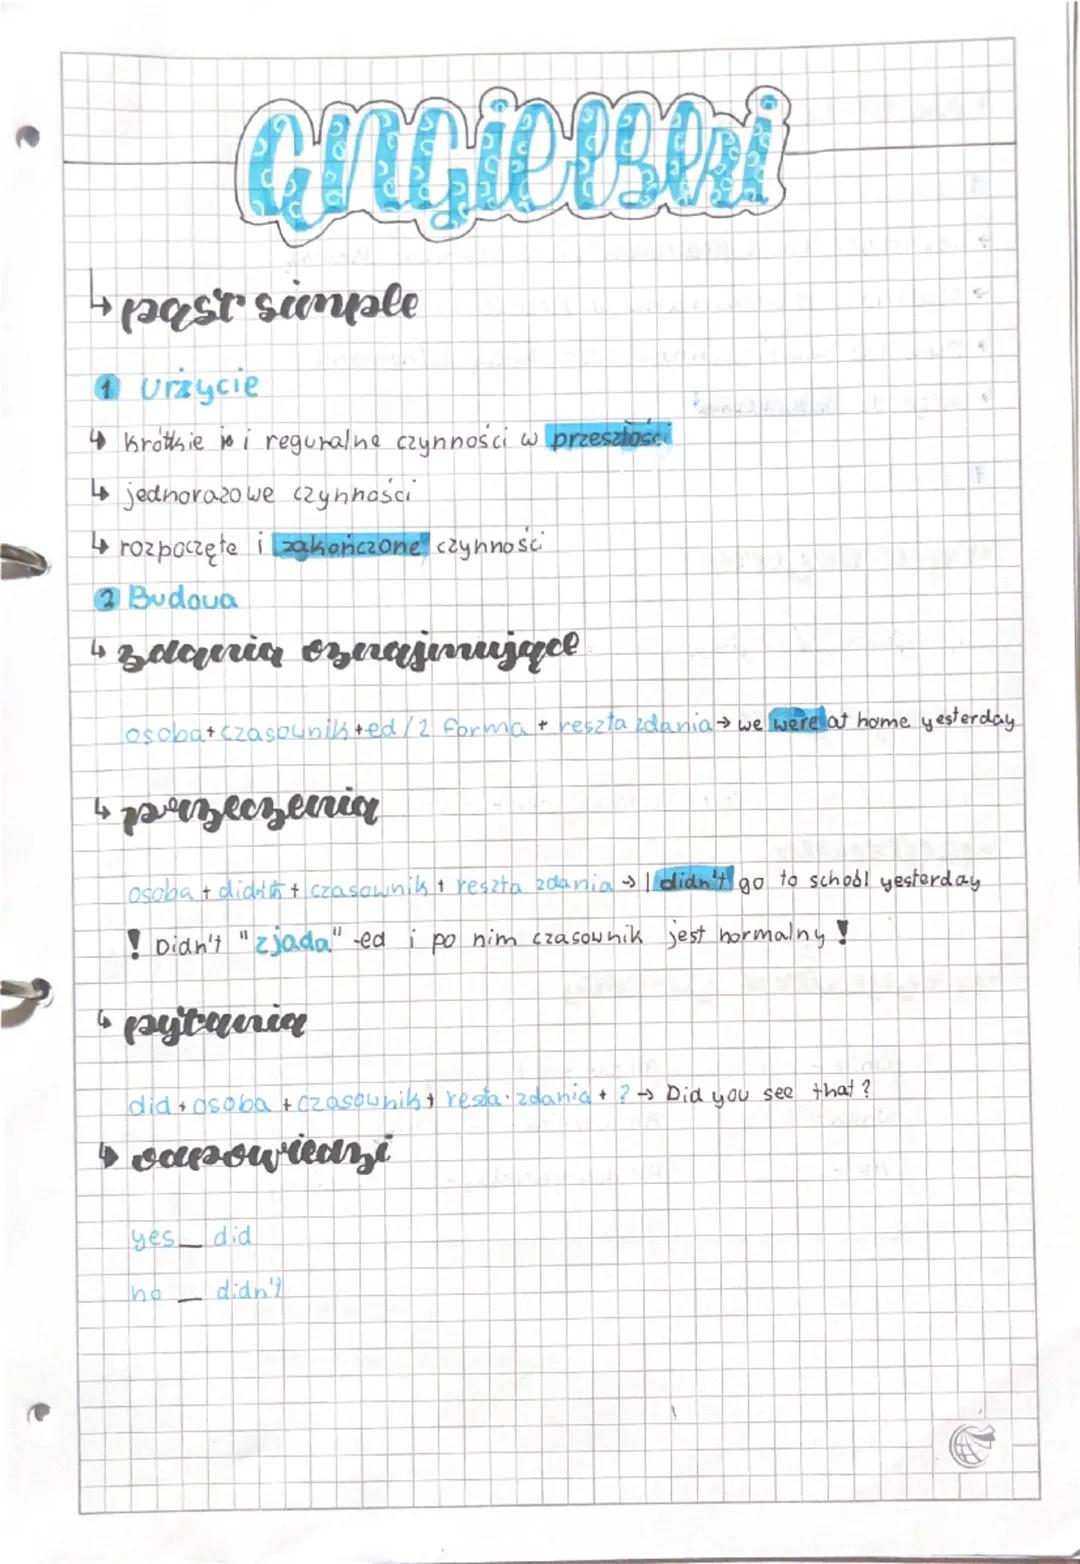 angielski
↳ past simple
1 Urzycie
↳ krótkie i regularne czynności w przeszłości
↳ jednorazowe czynności
↳ rozpoczęte i zakończone czynności
2 Budowa
↳ zdania oznajmujące
osoba + czasownik + ed / 2 forma + reszta zdania → we were at home yesterday
↳ przeczenia
osoba + didn't + czasownik + reszta zdania → I didn't go to school yesterday
! Didn't "zjada" -ed i po nim czasownik jest normalny !
↳ pytania
did + osoba + czasownik + reszta zdania + ? → Did you see that?
↳ odpowiedzi
yes _ did
no _ didn't